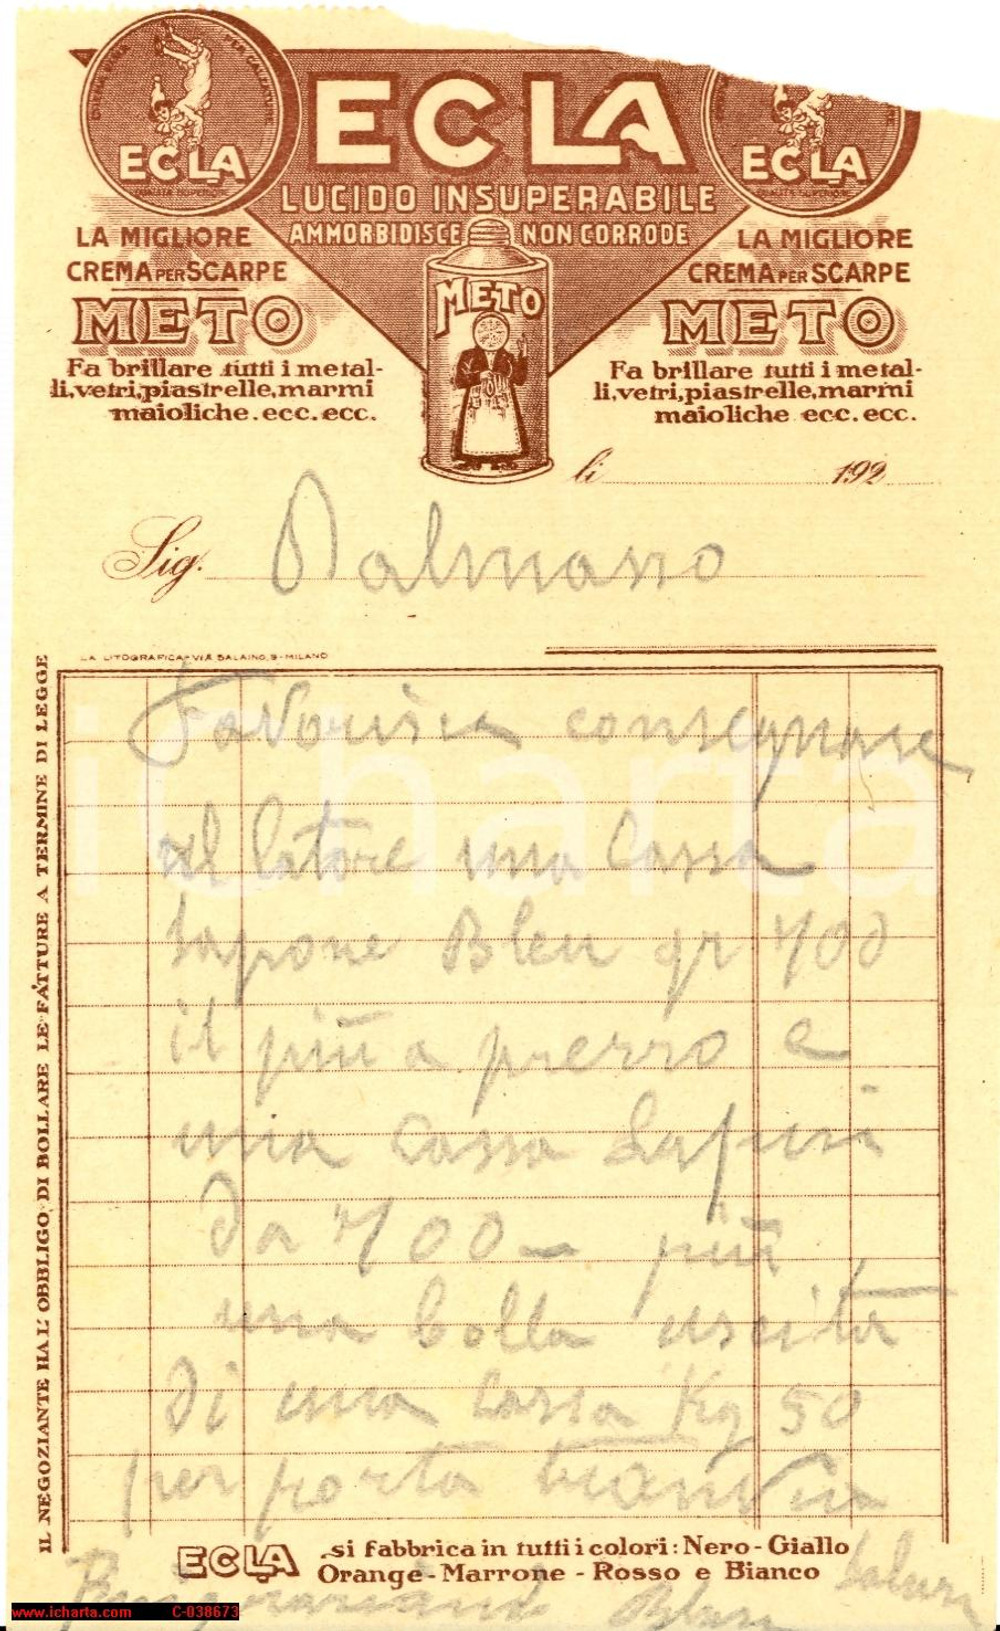 ECLA
ECLA
ECLA
LUCIDO INSUPERABILE
AMMORBIDISCE NON CORRODE
LA MIGLIORE
CREMA PER SCARPE
METO
Fa brillare tutti i metal-
li, vetri, piastrelle, marmi
maioliche. ecc. ecc.
METO
LA MIGLIORE
CREMA PER SCARPE
METO
Fa brillare tutti i metal-
li, vetri, piastrelle, marmi
maioliche ecc. ecc.
li 192
Sig. Dalmasso
LA LITOGRAFICA - VIA SALAINO, 9 - MILANO
IL NEGOZIANTE HA L'OBBLIGO DI BOLLARE LE FATTURE A TERMINE DI LEGGE
Favorisca consegnare
al latore una cassa
sapone Bleu gr 400
il più a prezzo e
una cassa
da 400 - più
una bolla uscita
di una cassa Kg 50
per porta
ECLA si fabbrica in tutti i colori: Nero - Giallo
Orange - Marrone - Rosso e Bianco
iCharta
www.icharta.com C-038673